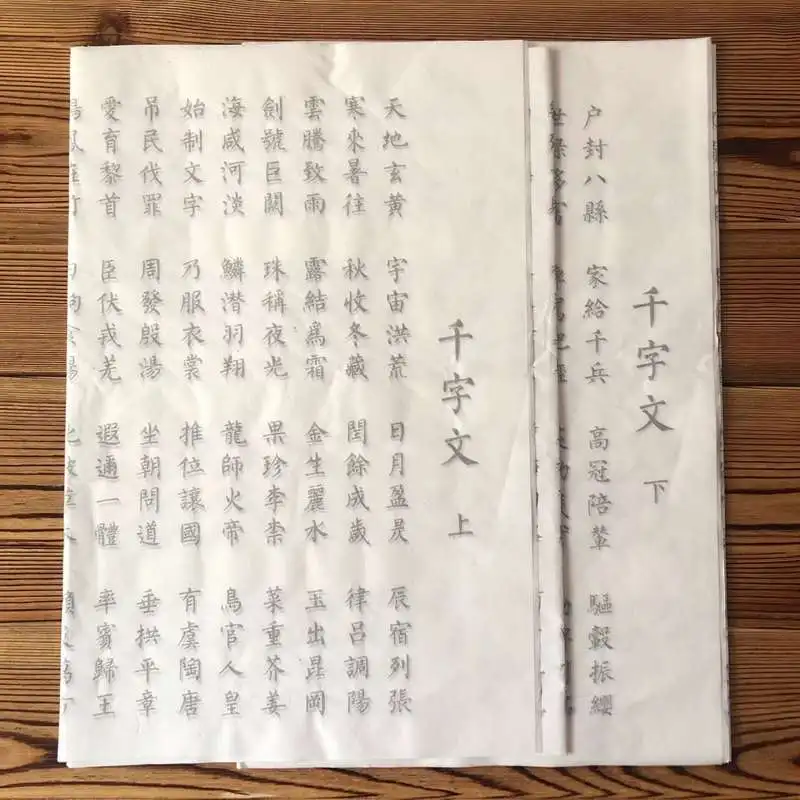 千字文 上
天地玄黄 宇宙洪荒 日月盈昃 辰宿列張
寒來暑往 秋收冬藏 閏餘成歲 律吕調陽
雲騰致雨 露結爲霜 金生麗水 玉出昆岡
劍號巨闕 珠稱夜光 果珍李柰 菜重芥姜
海咸河淡 鱗潜羽翔 龍師火帝 鳥官人皇
始制文字 乃服衣裳 推位讓國 有虞陶唐
吊民伐罪 周發殷湯 坐朝問道 垂拱平章
愛育黎首 臣伏戎羌 遐邇一體 率賓歸王
千字文 下
户封八縣 家給千兵 高冠陪輦 驅轂振纓